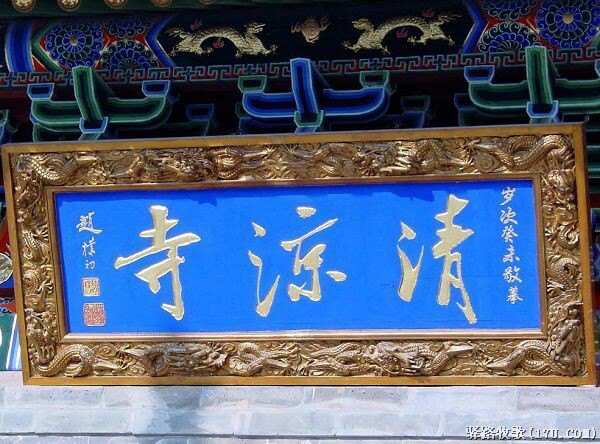 岁次癸未敬摹
清凉寺
趙樸初
驿路牧歌(17U.com)